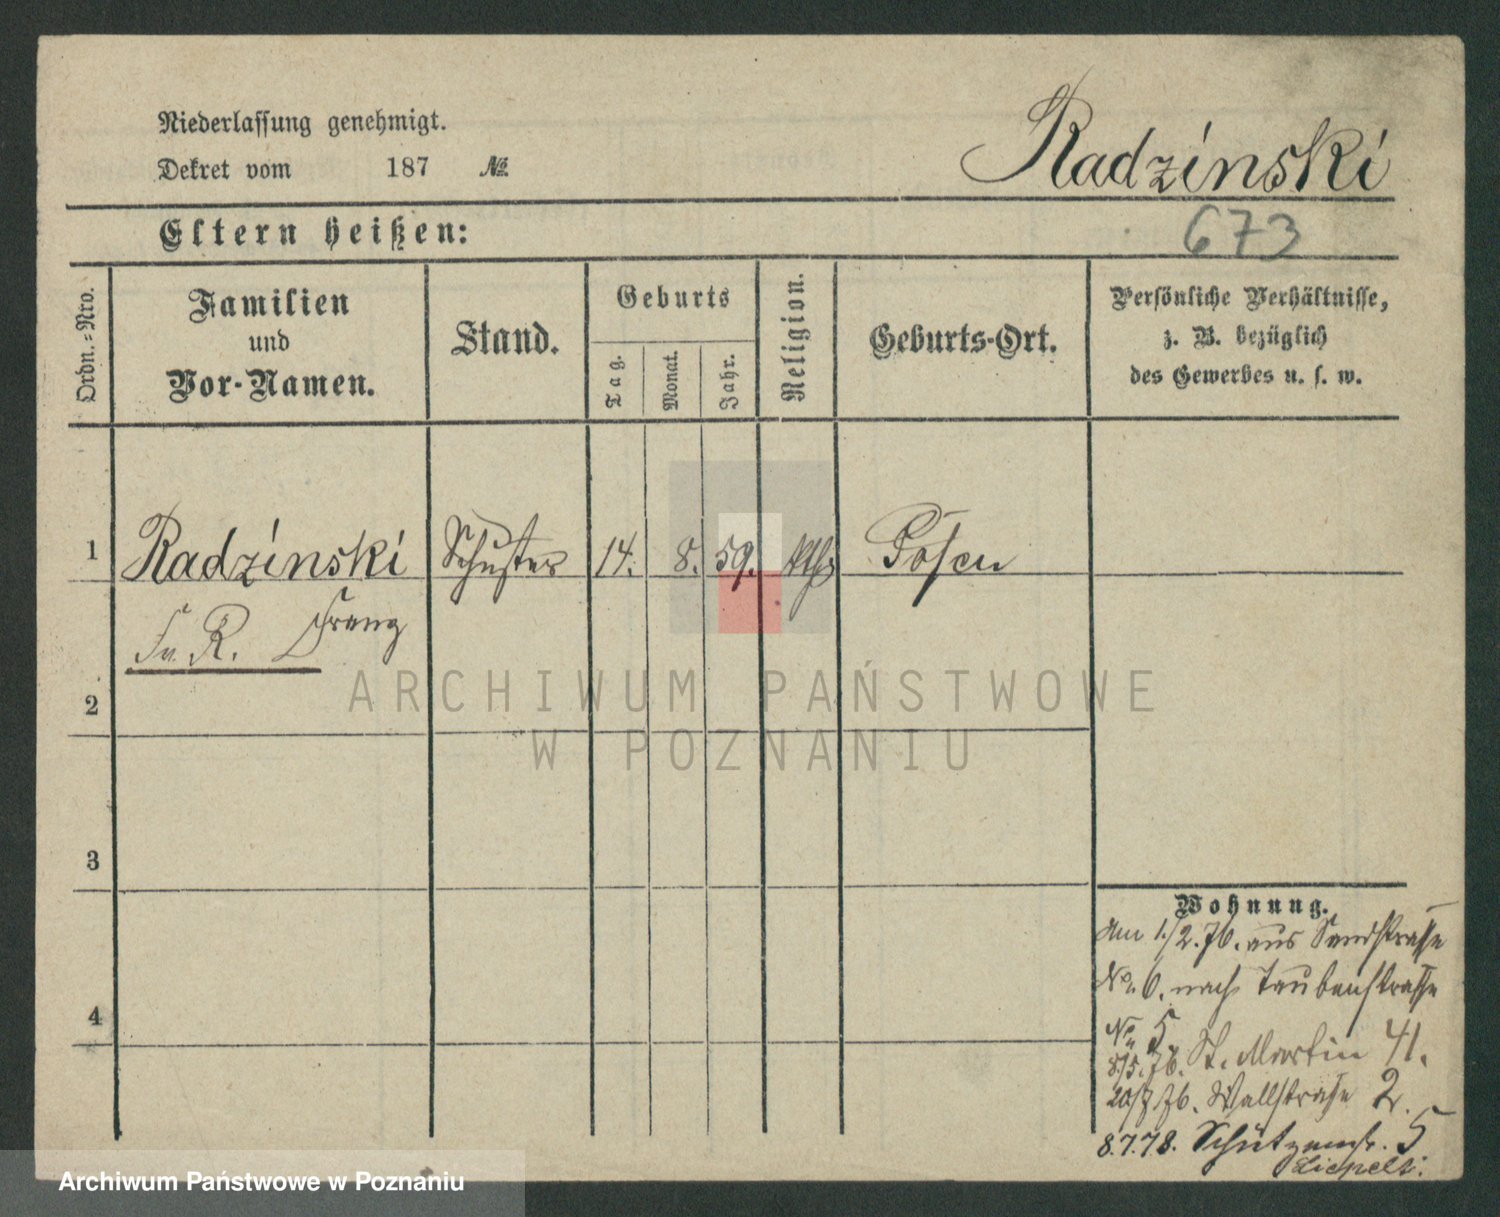 Niederlassung genehmigt.
Dekret vom 187 №
Radzinski
673
Eltern heißen:
Ordn.-Nro.
Familien
und
Vor-Namen.
Stand.
Geburts
Tag.
Monat.
Jahr.
Religion.
Geburts-Ort.
Persönliche Verhältnisse,
z. B. bezüglich
des Gewerbes u. s. w.
1 Radzinski Schuster 14. 8. 59. kth. Posen
R. Franz
2
3
4
ARCHIWUM PAŃSTWOWE
W POZNANIU
Wohnung.
Am 1./2.76. aus Sandstrasse
No. 6. nach Taubenstrasse
No. 5
8/5.76. St. Martin 41.
20/7 76. Wallstrasse 2.
8.7.78. Schützenstr. 5
Archiwum Państwowe w Poznaniu